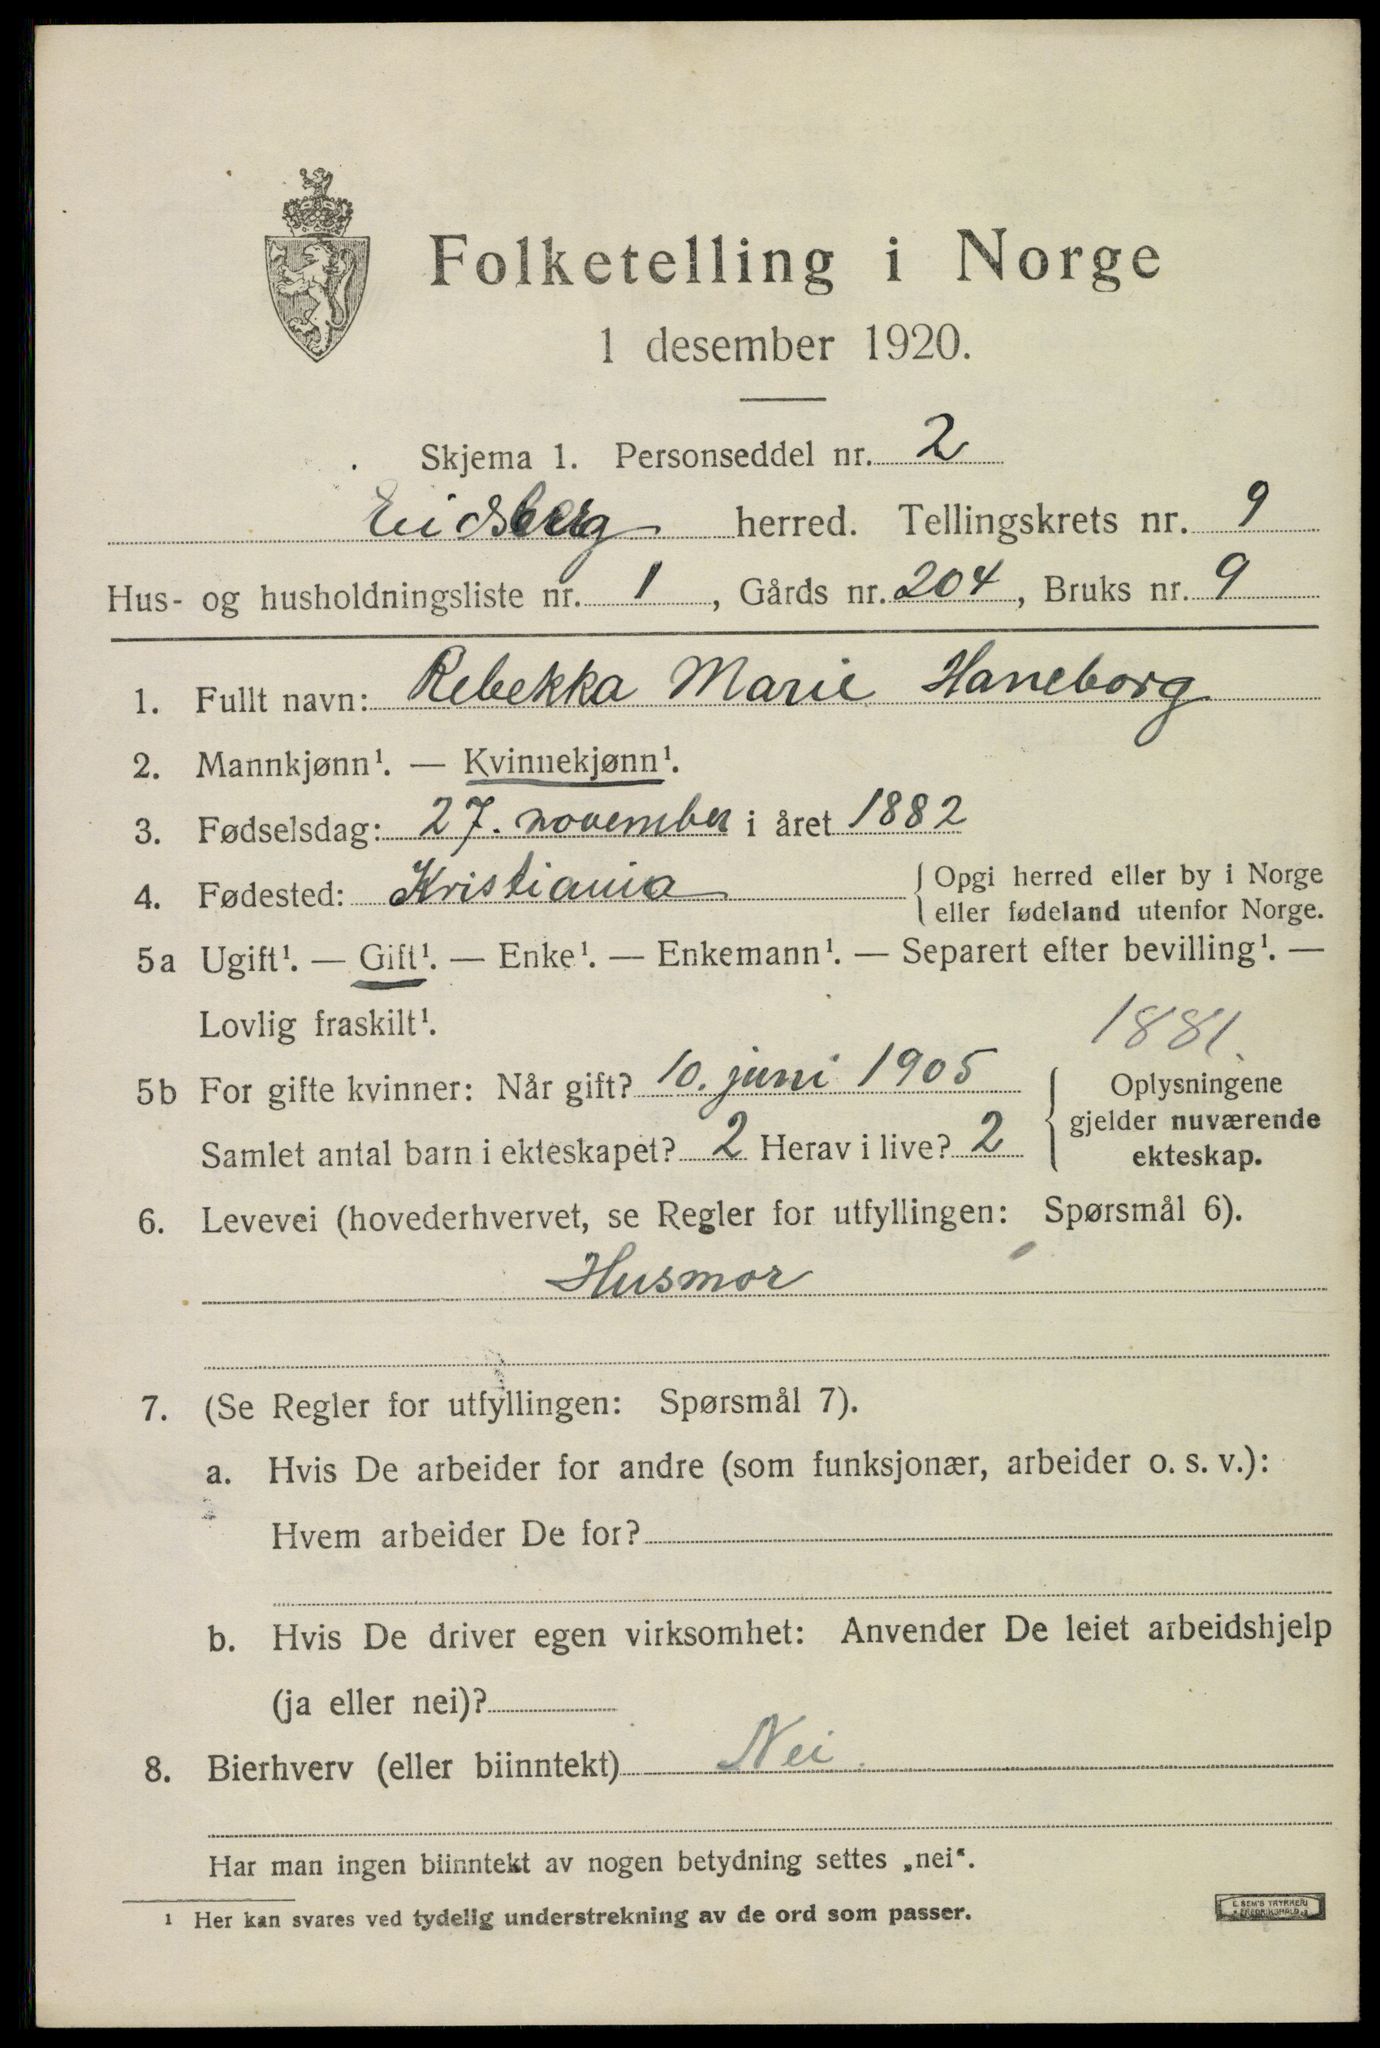 Folketelling i Norge
1 desember 1920.
Skjema 1. Personseddel nr. 2
Eidsberg herred. Tellingskrets nr. 9
Hus- og husholdningsliste nr. 1, Gårds nr. 204, Bruks nr. 9
1. Fullt navn: Rebekka Marie Haneborg
2. Mannkjønn¹. — Kvinnekjønn¹.
3. Fødselsdag: 27. november i året 1882
4. Fødested: Kristiania
Opgi herred eller by i Norge
eller fødeland utenfor Norge.
5a Ugift¹. — Gift¹. — Enke¹. — Enkemann¹. — Separert efter bevilling¹. —
Lovlig fraskilt¹.
1881.
5b For gifte kvinner: Når gift? 10. juni 1905
Samlet antal barn i ekteskapet? 2 Herav i live? 2
Oplysningene
gjelder nuværende
ekteskap.
6. Levevei (hovederhvervet, se Regler for utfyllingen: Spørsmål 6).
Husmor
7. (Se Regler for utfyllingen: Spørsmål 7).
a. Hvis De arbeider for andre (som funksjonær, arbeider o. s. v.):
Hvem arbeider De for?
b. Hvis De driver egen virksomhet: Anvender De leiet arbeidshjelp
(ja eller nei)?
8. Bierhverv (eller biinntekt) Nei.
Har man ingen biinntekt av nogen betydning settes „nei“.
¹ Her kan svares ved tydelig understrekning av de ord som passer.
E. SEM'S TRYKKERI
FREDRIKSHALD